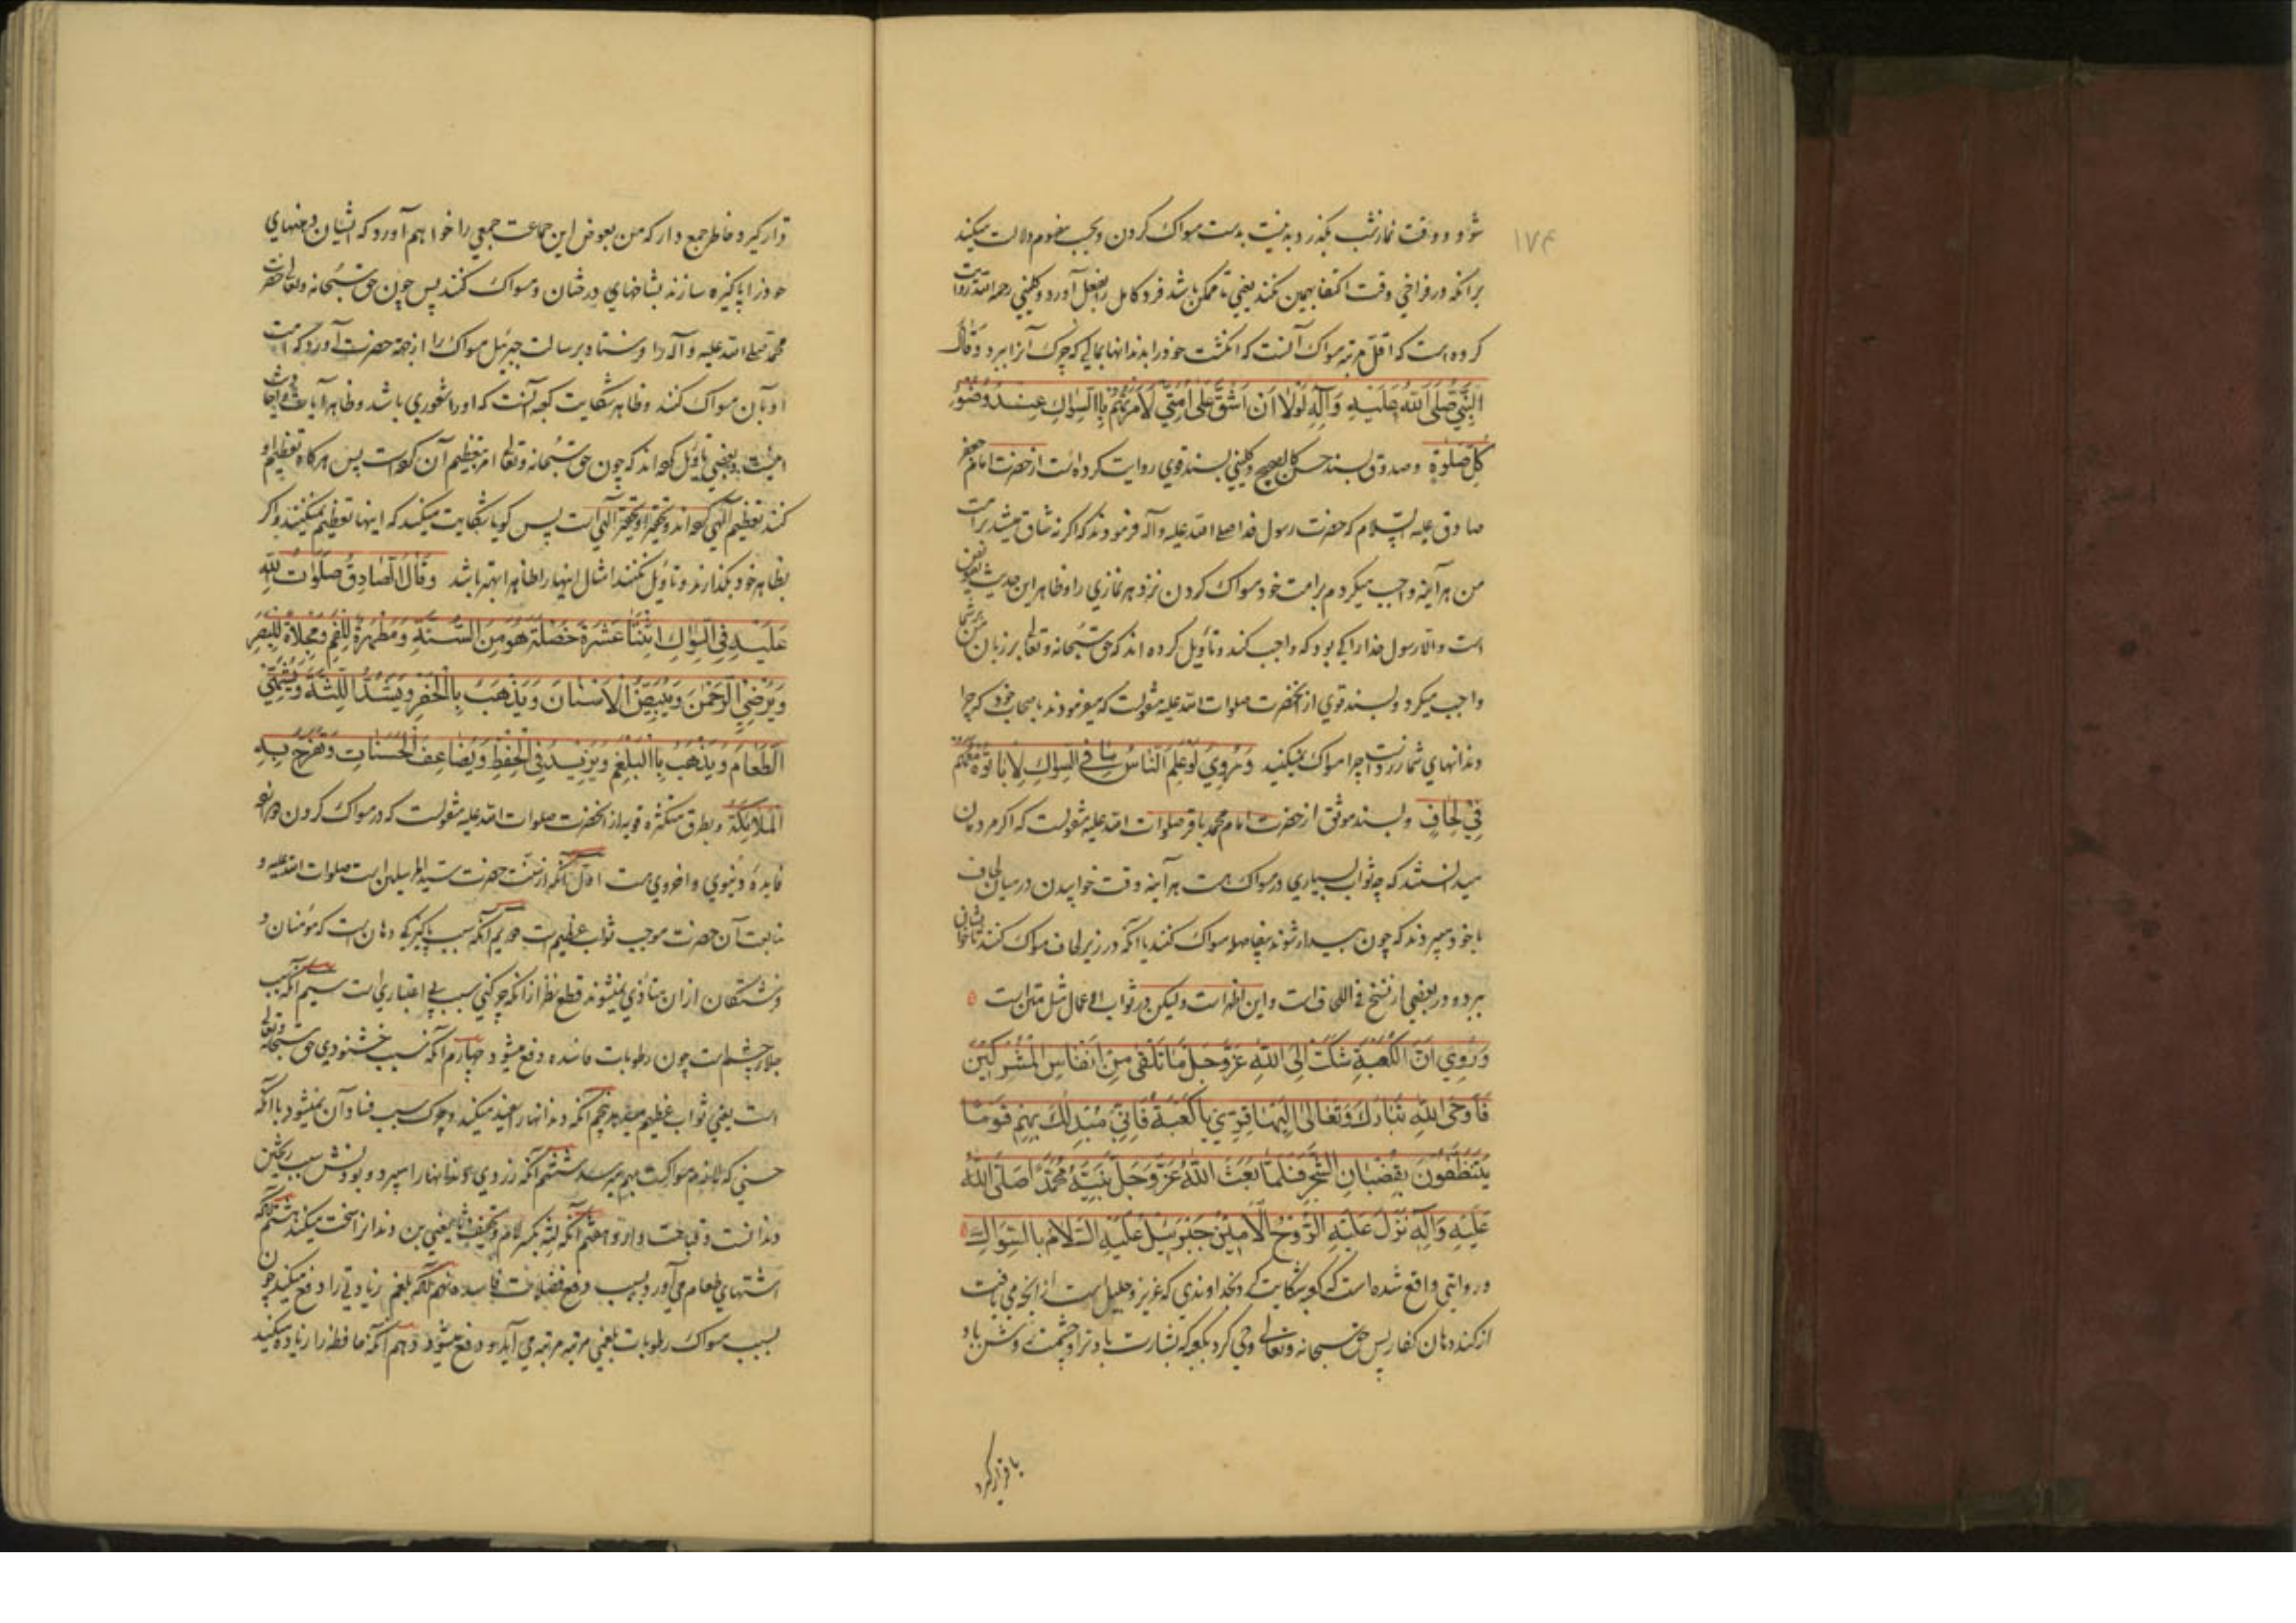 ۱۷۴
شود و وقت نماز شب بگذرد بدنیست بدست مسواک کردن و بحسب مفهوم دلالت میکند
برانکه در فراخی وقت اکتفا بهمین نکند یعنی تا ممکن باشد فرد کامل را بفعل آورد و کلینی رحمه الله روایت
کرده است که اقل مرتبه مسواک آنست که انکشت خود را بدندانها بمالی که چرک آنرا ببرد وَقَالَ
النَّبِيُّ صَلَّى اللهُ عَلَيْهِ وَآلِهِ لَوْلَا اَنْ اَشُقَّ عَلَى اُمَّتِي لَاَمَرْتُهُمْ بِالسِّوَاكِ عِنْدَ وُضُوْءِ
كُلِّ صَلٰوةٍ وصدوق بسند حسن کالصحیح و کلینی بسند قوی روایت کرده است از حضرت امام جعفر
صادق علیه السلام که حضرت رسول خدا صلی الله علیه وآله فرمودند که اکر نه شاق میشد بر امت
من هر آینه واجب میکردم بر امت خود مسواک کردن نزد هر نمازی را و ظاهر این حدیث تفویض
است والا رسول خدا را کی بود که واجب کند و تاویل کرده اند که حق سبحانه و تعالی بر زبان من بر شما
واجب میکرد و بسند قوی از انحضرت صلوات الله علیه منقولست که میفرمودند باصحاب خود که چرا
دندانهای شما زرد است چرا مسواک نمیکنید وَ مَرْوِيٌّ لَوْ عَلِمَ النَّاسُ مَا فِي السِّوَاكِ لَاَبَاتُوْهُ مَعَهُمْ
فِيْ لِحَافٍ و بسند موثق از حضرت امام محمد باقر صلوات الله علیه منقولست که اکر مردمان
میدانستند که چه ثواب بسیاری در مسواک هست هر آینه وقت خوابیدن در میان لحاف
با خود میبردند که چون بیدار شوند بیفاصله مسواک کنند یا آنکه در زیر لحاف مسواک کنند تا خوابشان
ببرد و در بعضی از نسخ فی اللحاف است و این اظهر است ولیکن در ثواب الاعمال مثل متن است
وَرُوِيَ اَنَّ الْكَعْبَةَ شَكَتْ اِلَى اللهِ عَزَّ وَجَلَّ مَا تَلْقٰى مِنْ اَنْفَاسِ الْمُشْرِكِيْنَ
فَاَوْحَى اللهُ تَبَارَكَ وَتَعَالٰى اِلَيْهَا قِرِّيْ يَا كَعْبَةُ فَاِنِّيْ مُبْدِلُكِ بِهِمْ قَوْمًا
يَتَنَظَّفُوْنَ بِقُضْبَانِ الشَّجَرِ فَلَمَّا بَعَثَ اللهُ عَزَّ وَجَلَّ نَبِيَّهُ مُحَمَّدًا صَلَّى اللهُ
عَلَيْهِ وَآلِهِ نَزَلَ عَلَيْهِ الرُّوْحُ الْاَمِيْنُ جَبْرَئِيْلُ عَلَيْهِ السَّلَامُ بِالسِّوَاكِ
و روایتی واقع شده است که کعبه شکایت کرد بخداوندی که عزیز و جلیل است از آنچه می یافت
از کند دهان کفار پس حق سبحانه و تعالی وحی کرد بکعبه که بشارت باد ترا و چشمت روشن باد و
با قرار کیرد
قرار کیر و خاطر جمع دار که من بعوض این جماعت جمعی را خواهم آورد که ایشان دهنهای
خود را پاکیزه سازند بشاخهای درختان و مسواک کنند پس چون حق سبحانه و تعالی حضرت
محمد صلی الله علیه وآله را فرستاد برسالت جبرئیل مسواک را از جهة حضرت آورد که امت
او بآن مسواک کنند و ظاهر شکایت کعبه آنست که او را شعوری باشد و ظاهر آیات و احادیث
اینست و بعضی تاویل کرده اند که چون حق سبحانه و تعالی امر بتعظیم آن کرده است پس هرکاه تعظیم او
کنند تعظیم آلهی کرده اند و تحقیر او تحقیر آلهی است پس کویا شکایت میکند که اینها تعظیم نمیکنند و اکر
بظاهر خود بکذارند و تاویل نکنند امثال اینها را ظاهرا بهتر باشد وَقَالَ الصَّادِقُ صَلَوَاتُ اللهِ
عَلَيْهِ فِي السِّوَاكِ اثْنَتَا عَشْرَةَ خَصْلَةً هُوَ مِنَ السُّنَّةِ وَمَطْهَرَةٌ لِلْفَمِ وَمِجْلَاةٌ لِلْبَصَرِ
وَيُرْضِي الرَّحْمٰنَ وَيُبَيِّضُ الْاَسْنَانَ وَيَذْهَبُ بِالْحَفْرِ وَيَشُدُّ اللِّثَةَ وَيُشَهِّي
الطَّعَامَ وَيَذْهَبُ بِالْبَلْغَمِ وَيَزِيْدُ فِي الْحِفْظِ وَيُضَاعِفُ الْحَسَنَاتِ وَتَفْرَحُ بِهِ
الْمَلَائِكَةُ و بطرق متکثره قویه از انحضرت صلوات الله علیه منقولست که در مسواک کردن دوازده
فایدهٔ دنیوی و اخروی هست اول آنکه از سنت حضرت سید المرسلین است صلوات الله علیه و
متابعت آن حضرت موجب ثواب عظیم است دویم آنکه سبب پاکیزکی دهان است که مؤمنان و
فرشتکان از ان متاذی نمیشوند قطع نظر از انکه چرکنی سبب بی اعتباری است سیم آنکه سبب
جلاء چشم است چون رطوبات فاسده دفع میشود چهارم آنکه سبب خشنودی حق سبحانه و تعالی
است یعنی ثواب عظیم میدهد پنجم آنکه دندانها را سفید میکند و چرک سبب فساد آن نمیشود با آنکه
حسنی که لازم مسواکست بهم میرسد ششم آنکه زردی دندانها را میبرد و بودنش سبب ریختن
دندانست و قباحت دارد هفتم آنکه لثه بکسر لام و تخفیف ثا یعنی بن دندانرا سخت میکند هشتم آنکه
اشتهای طعام می آورد بسبب دفع فضلات فاسده نهم آنکه بلغم زیادتی را دفع میکند چون
بسبب مسواک رطوبات بلغمی مرتبه مرتبه می آید و دفع میشود دهم آنکه حافظه را زیاده میکند